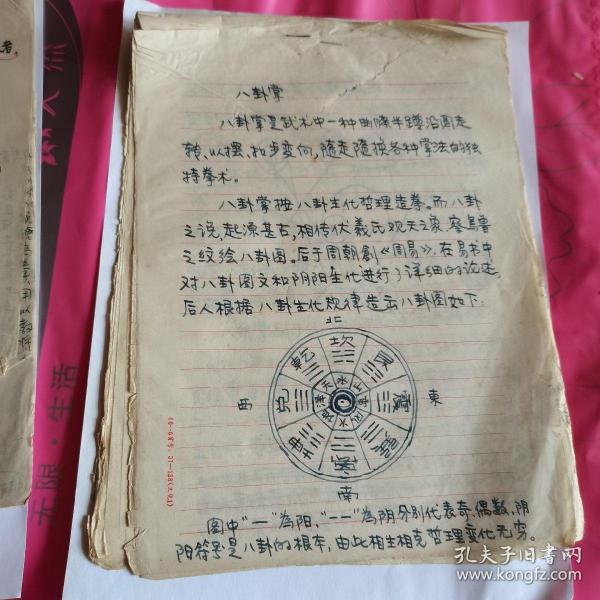 八卦掌
八卦掌是武术中一种曲膝半蹲沿圆走
转、以摆、扣步变向,随走随换各种掌法的独
特拳术。
八卦掌按八卦生化哲理造拳。而八卦
之说,起源甚古,相传伏羲氏观天之象,察鸟兽
之纹绘八卦图。后于周朝創《周易》,在易书中
对八卦图文和阴阳生化进行了详细的论述
后人根据八卦生化规律造出八卦图如下:
北
乾 坎 艮
天 水 山
西 兑 泽 雷 震 東
地 火 风
坤 離 巽
南
图中“一”為阳,“--”為阴分别代表奇、偶数,阴
阳符号是八卦的根本,由此相生相克哲理变化无穷。
无限·生活
孔夫子旧书网
www.kongfz.com